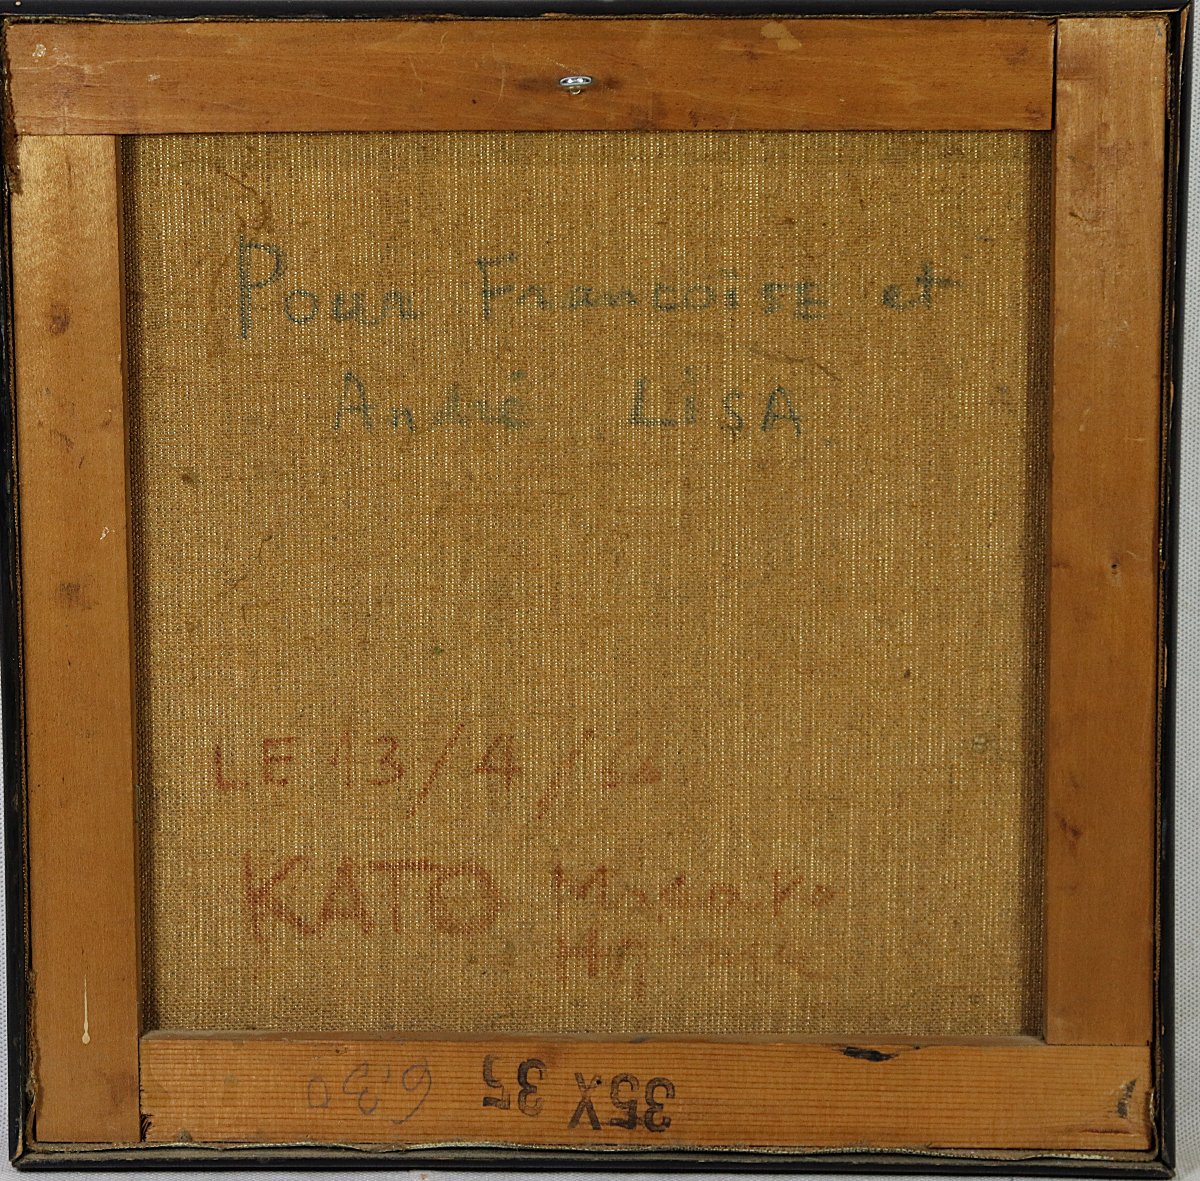 Pour Francoise et
André LiSA
LE 13/4/
KATO
35 X 35
6.30